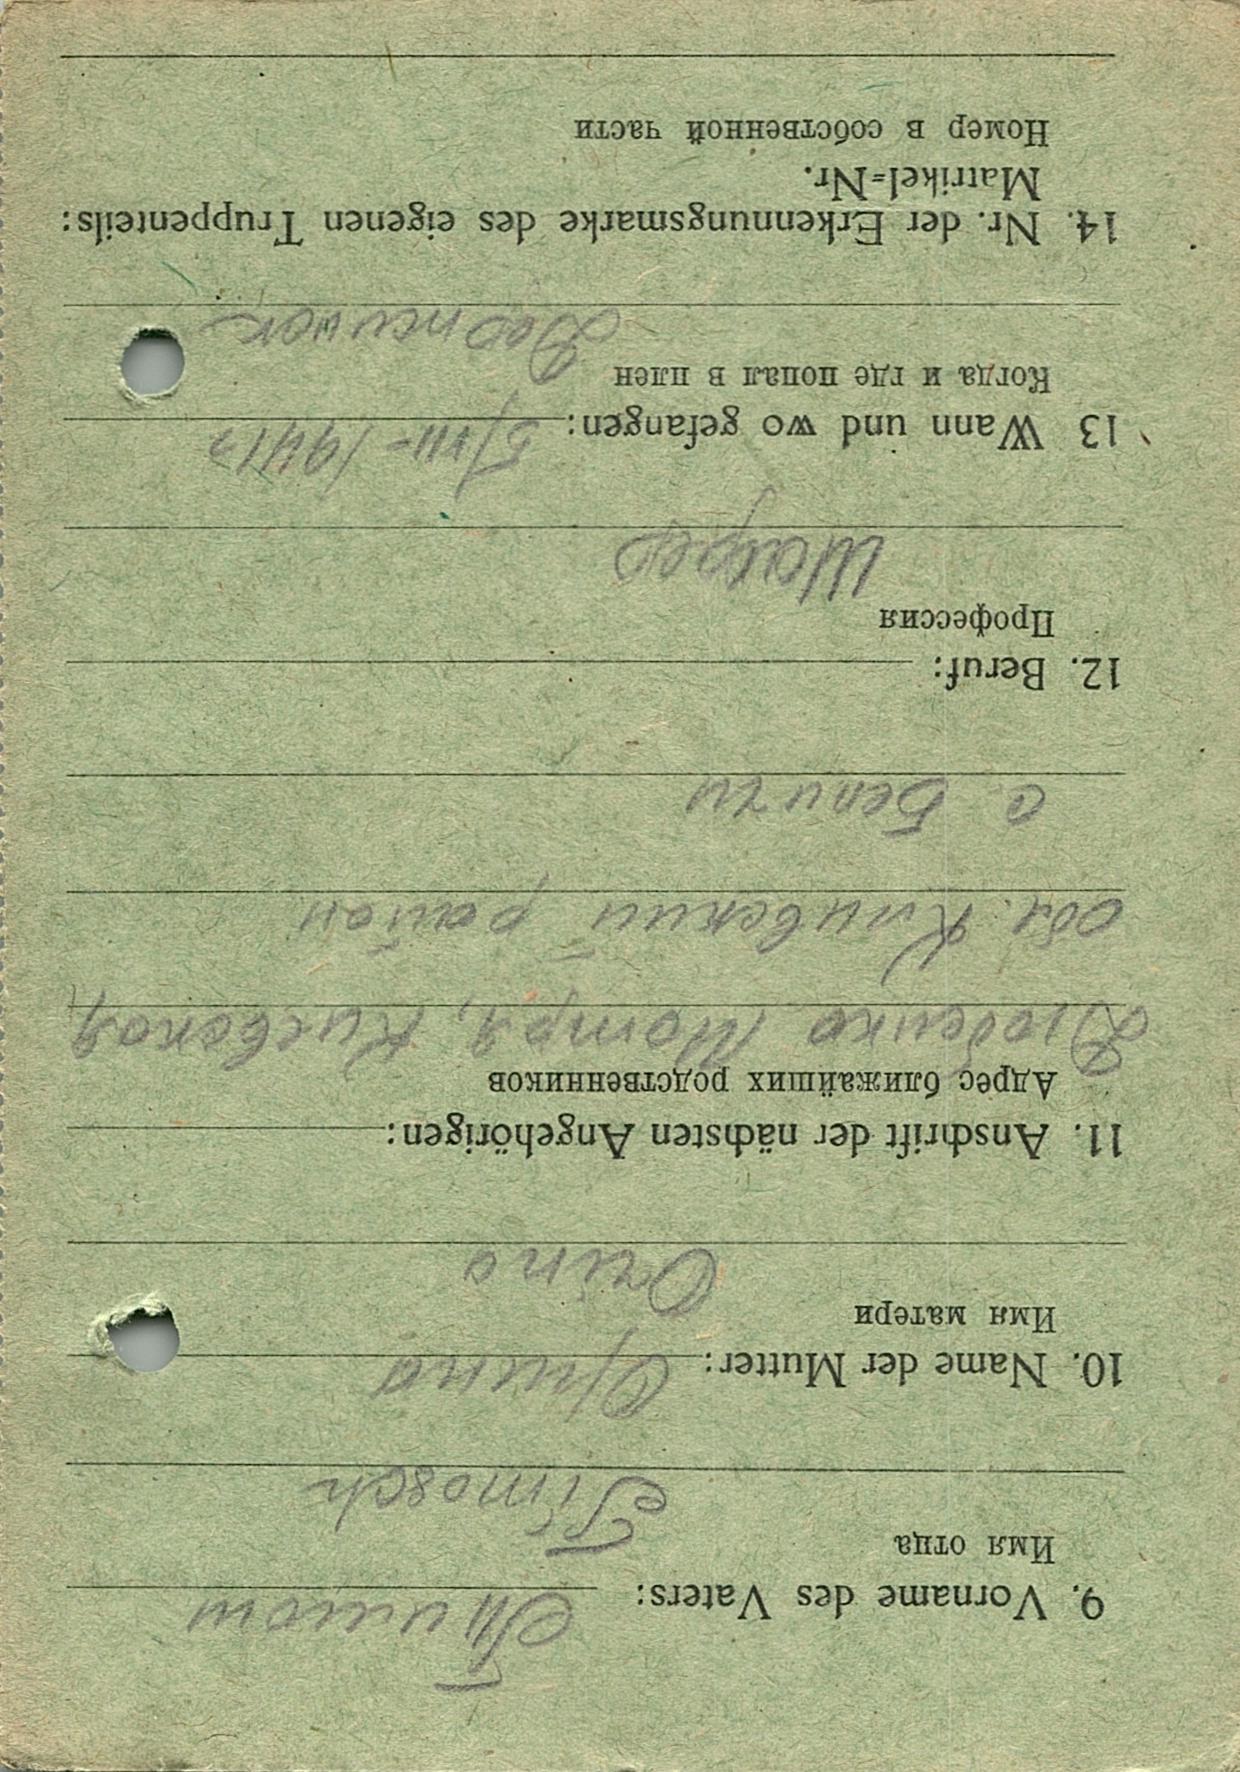 9. Vorname des Vaters: Тимош
Имя отца
Timosch
10. Name der Mutter: Орина
Имя матери
Orina
11. Anschrift der nächsten Angehörigen:
Адрес ближайших родственников
Мотря, Киевская
обл. Киевский район
с Беличи
12. Beruf:
Профессия
Шофер
13 Wann und wo gefangen: 5/VIII-1941г
Когда и где попал в плен
14. Nr. der Erkennungsmarke des eigenen Truppenteils:
Matrikel=Nr.
Номер в собственной части